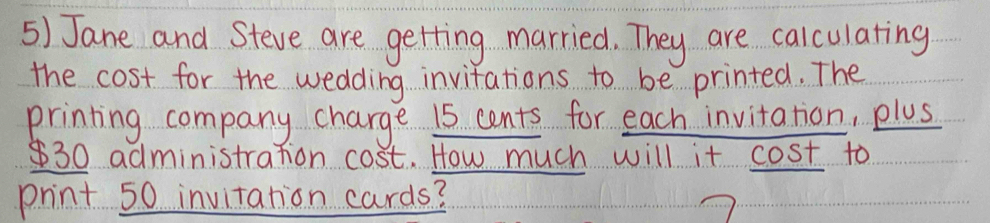 5) Jane and Steve are getting married. They are calculating
the cost for the wedding invitations to be printed. The
printing company charge 15 cents for each invitation, plus
$30 administration cost. How much will it cost to
print 50 invitation cards?